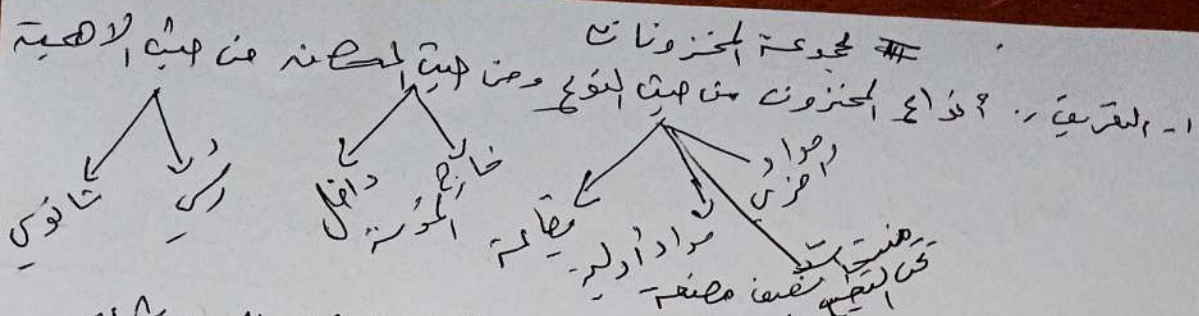 # مجموعة المخزونات
1- التعريف: أنواع المخزون من حيث النوع ومن حيث المكان من حيث الأهمية
مواد أخرى
منتجات تحت التجهيز نصف مصنعة
مواد أولية
بضاعة
خارج المؤسسة
داخل
رئيسي
ثانوي